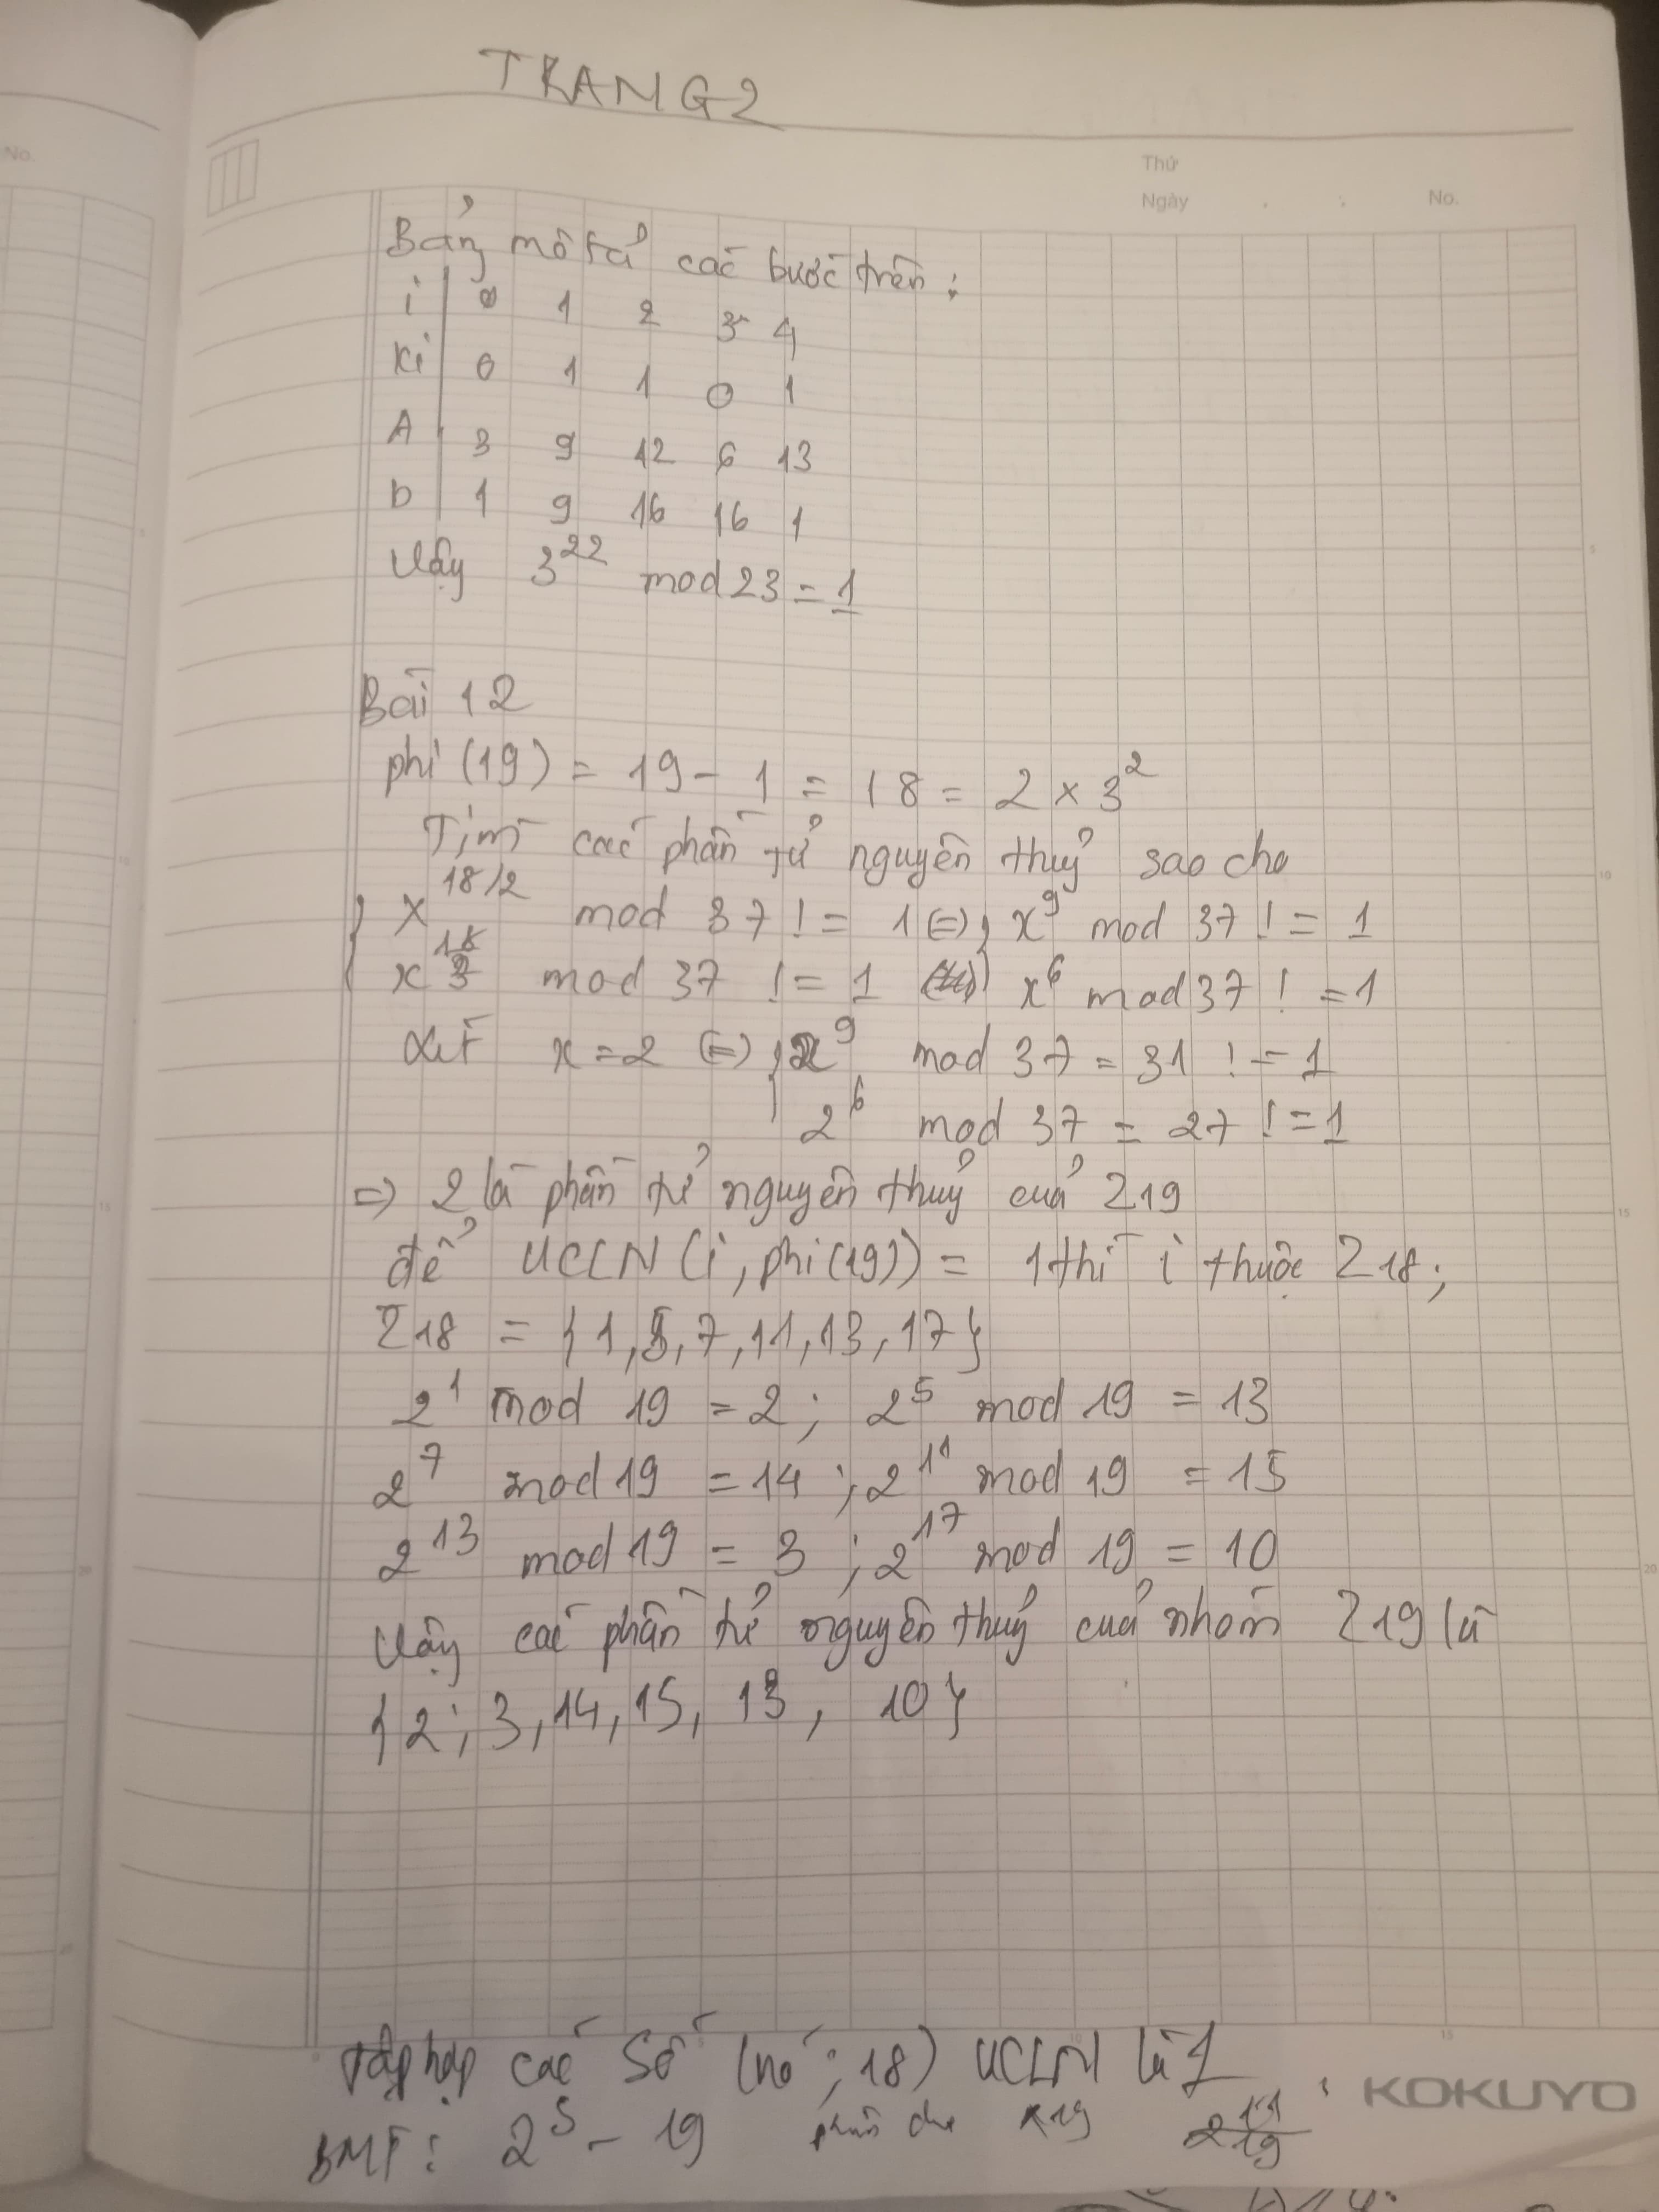 TRANG 2
No.
Thứ
Ngày . : No.
Bảng mô tả các bước trên :
i 0 1 2 3 4
Ki 0 1 1 0 1
A 3 9 12 6 13
b 1 9 16 16 1
Vậy 3^22 mod 23 = 1
Bài 12
phi (19) = 19 - 1 = 18 = 2 x 3^2
Tìm các phần tử nguyên thuỷ sao cho
{ x^18/2 mod 37 != 1 (=) { x^9 mod 37 != 1
x^18/3 mod 37 != 1 x^6 mod 37 != 1
Xét x = 2 (=) { 2^9 mod 37 = 31 != 1
2^6 mod 37 = 27 != 1
=) 2 là phần tử nguyên thuỷ của Z19
để UCLN (i, phi(19)) = 1 thì i thuộc Z18;
Z18 = {1, 5, 7, 11, 13, 17}
2^1 mod 19 = 2; 2^5 mod 19 = 13
2^7 mod 19 = 14; 2^11 mod 19 = 15
2^13 mod 19 = 3; 2^17 mod 19 = 10
Vậy các phần tử nguyên thuỷ của nhóm Z19 là
{2; 3, 14, 15, 13, 10}
Tập hợp các số (nó ; 18) UCLN là 1
KOKUYO
BMT: 2^5 - 19 phần dư 19